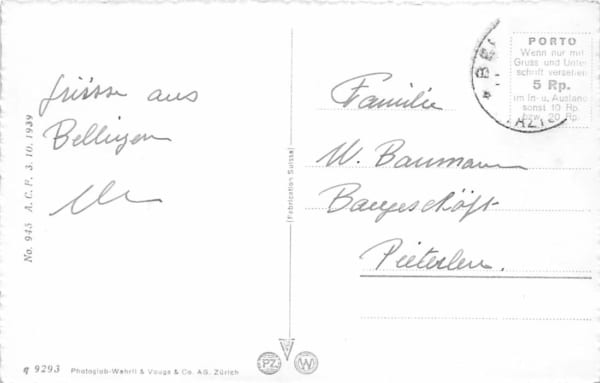 Grüsse aus
Bellinzen
No. 945 A.C.F. 3. 10. 1939
q 9293 Photoglob-Wehrli & Vouga & Co. AG. Zürich
Fabrication Suisse
PZ
W
PORTO
Wenn nur mit
Gruss und Unter
schrift versehen
5 Rp.
im In- u. Ausland
sonst 10 Rp.
bzw. 20 Rp.
Familie
W. Baumann
Baugeschäft
Pieterlen.